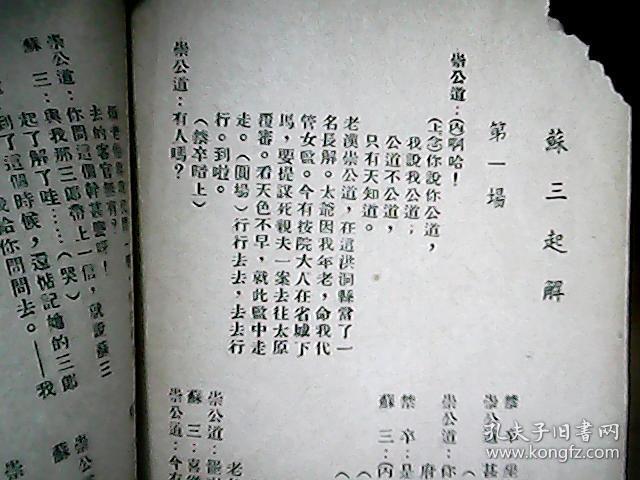 蘇三起解
第一場
崇公道：(內啊哈！
(上念你說你公道，
我說我公道；
公道不公道，
只有天知道。
老漢崇公道，在這洪洞縣當了一
名長解。太爺因我年老，命我代
管女監。今有按院大人在省城下
馬，要提謀死親夫一案去往太原
覆審。看天色不早，就此監中走
走。(圓場)行行去去，去去行
行。到啦。
(禁卒暗上)
崇公道：有人嗎？
禁卒
崇公道：甚
崇公道：你
府
禁卒：是
蘇三：(內
(
老
崇公道：
蘇三：喜從
崇公道：今有
去的客官無有？
崇公道：你問這個幹甚麼呀！
蘇三：與我那三郎帶上一信，就說蘇三
起了解了哇……(哭)
到了這個時候，還惦記她的三郎
給你問問去。——我
崇公
蘇
崇
孔夫子旧书网
www.kongfz.com